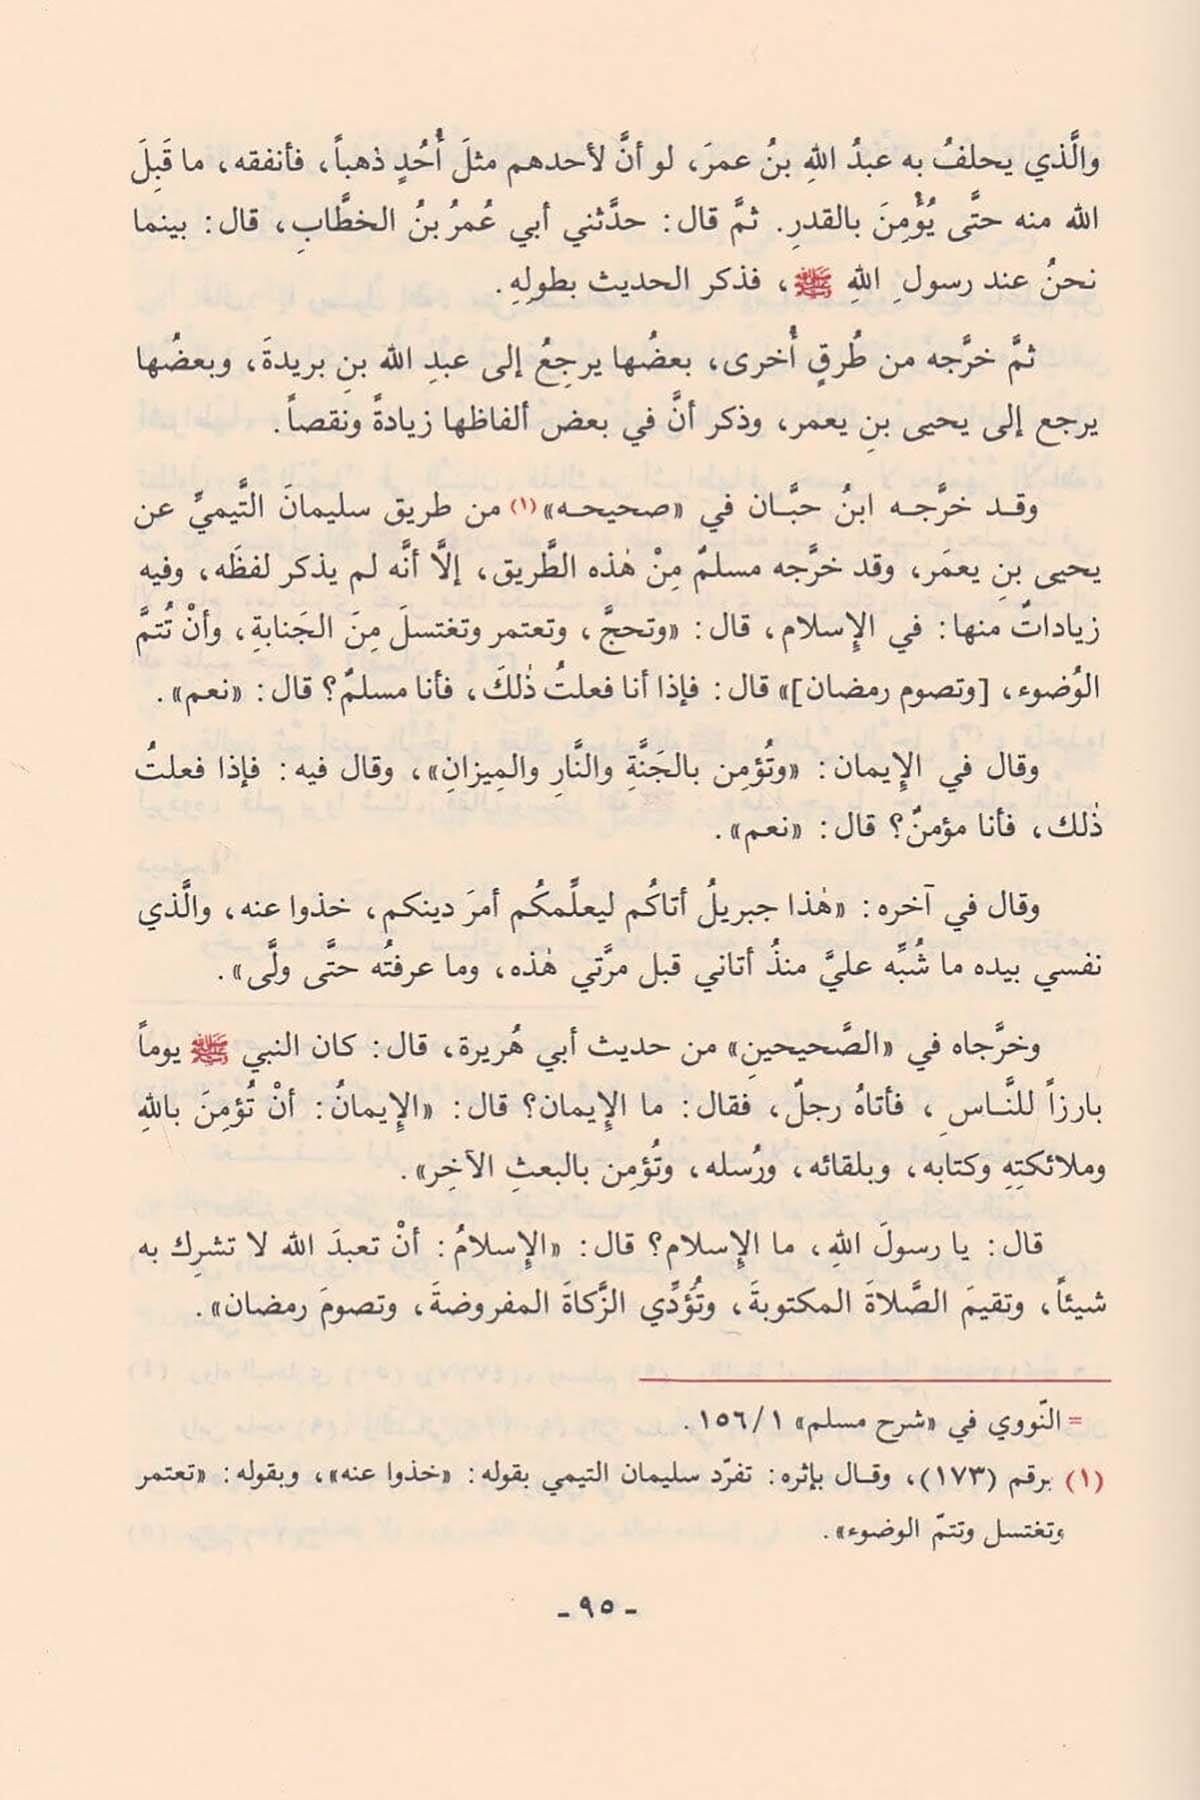 والَّذي يحلفُ به عبدُ اللهِ بنُ عمرَ، لو أنَّ لأحدهم مثلَ أُحُدٍ ذهباً، فأنفقه، ما قَبِلَ
الله منه حتَّى يُؤْمِنَ بالقدرِ. ثمَّ قال: حدَّثني أبي عُمرُ بنُ الخطَّابِ، قال: بينما
نحنُ عند رسولِ اللهِ ﷺ، فذكر الحديث بطولِهِ.
ثمَّ خرَّجه من طُرقٍ أُخرى، بعضُها يرجِعُ إلى عبدِ الله بنِ بريدةَ، وبعضُها
يرجع إلى يحيى بنِ يعمر، وذكر أنَّ في بعض ألفاظها زيادةً ونقصاً.
وقد خرَّجه ابنُ حبَّان في «صحيحه»(١) من طريق سليمانَ التَّيميِّ عن
يحيى بنِ يعمَر، وقد خرَّجه مسلمٌ مِنْ هٰذه الطَّريق، إلَّا أنَّه لم يذكر لفظَه، وفيه
زياداتٌ منها: في الإِسلام، قال: «وتحجَّ، وتعتمر وتغتسلَ مِنَ الجَنابةِ، وأنْ تُتمَّ
الوُضوء، [وتصوم رمضان]» قال: فإذا أنا فعلتُ ذٰلكَ، فأنا مسلمٌ؟ قال: «نعم».
وقال في الإِيمان: «وتُؤمِن بالجَنَّةِ والنَّارِ والمِيزانِ»، وقال فيه: فإذا فعلتُ
ذٰلك، فأنا مؤمنٌ؟ قال: «نعم».
وقال في آخره: «هٰذا جبريلُ أتاكُم ليعلِّمكُم أمرَ دينكم، خذوا عنه، والَّذي
نفسي بيده ما شُبِّه عليَّ منذُ أتاني قبل مرَّتي هٰذه، وما عرفتُه حتَّى ولَّى».
وخرَّجاه في «الصَّحيحينِ» من حديث أبي هُريرة، قال: كان النبي ﷺ يوماً
بارزاً للنَّاسِ، فأتاهُ رجلٌ، فقال: ما الإِيمان؟ قال: «الإِيمانُ: أنْ تُؤمِنَ باللهِ
وملائكتِهِ وكتابه، وبلقائه، ورُسله، وتُؤمِن بالبعثِ الآخِر».
قال: يا رسولَ اللهِ، ما الإِسلام؟ قال: «الإِسلامُ: أنْ تعبدَ الله لا تشرِك به
شيئاً، وتقيمَ الصَّلاةَ المكتوبةَ، وتُؤدِّي الزَّكاةَ المفروضةَ، وتصومَ رمضان».
= النّووي في «شرح مسلم» ١/ ١٥٦.
(١) برقم (١٧٣)، وقال بإثره: تفرّد سليمان التيمي بقوله: «خذوا عنه»، وبقوله: «تعتمر
وتغتسل وتتمّ الوضوء».
- ٩٥ -